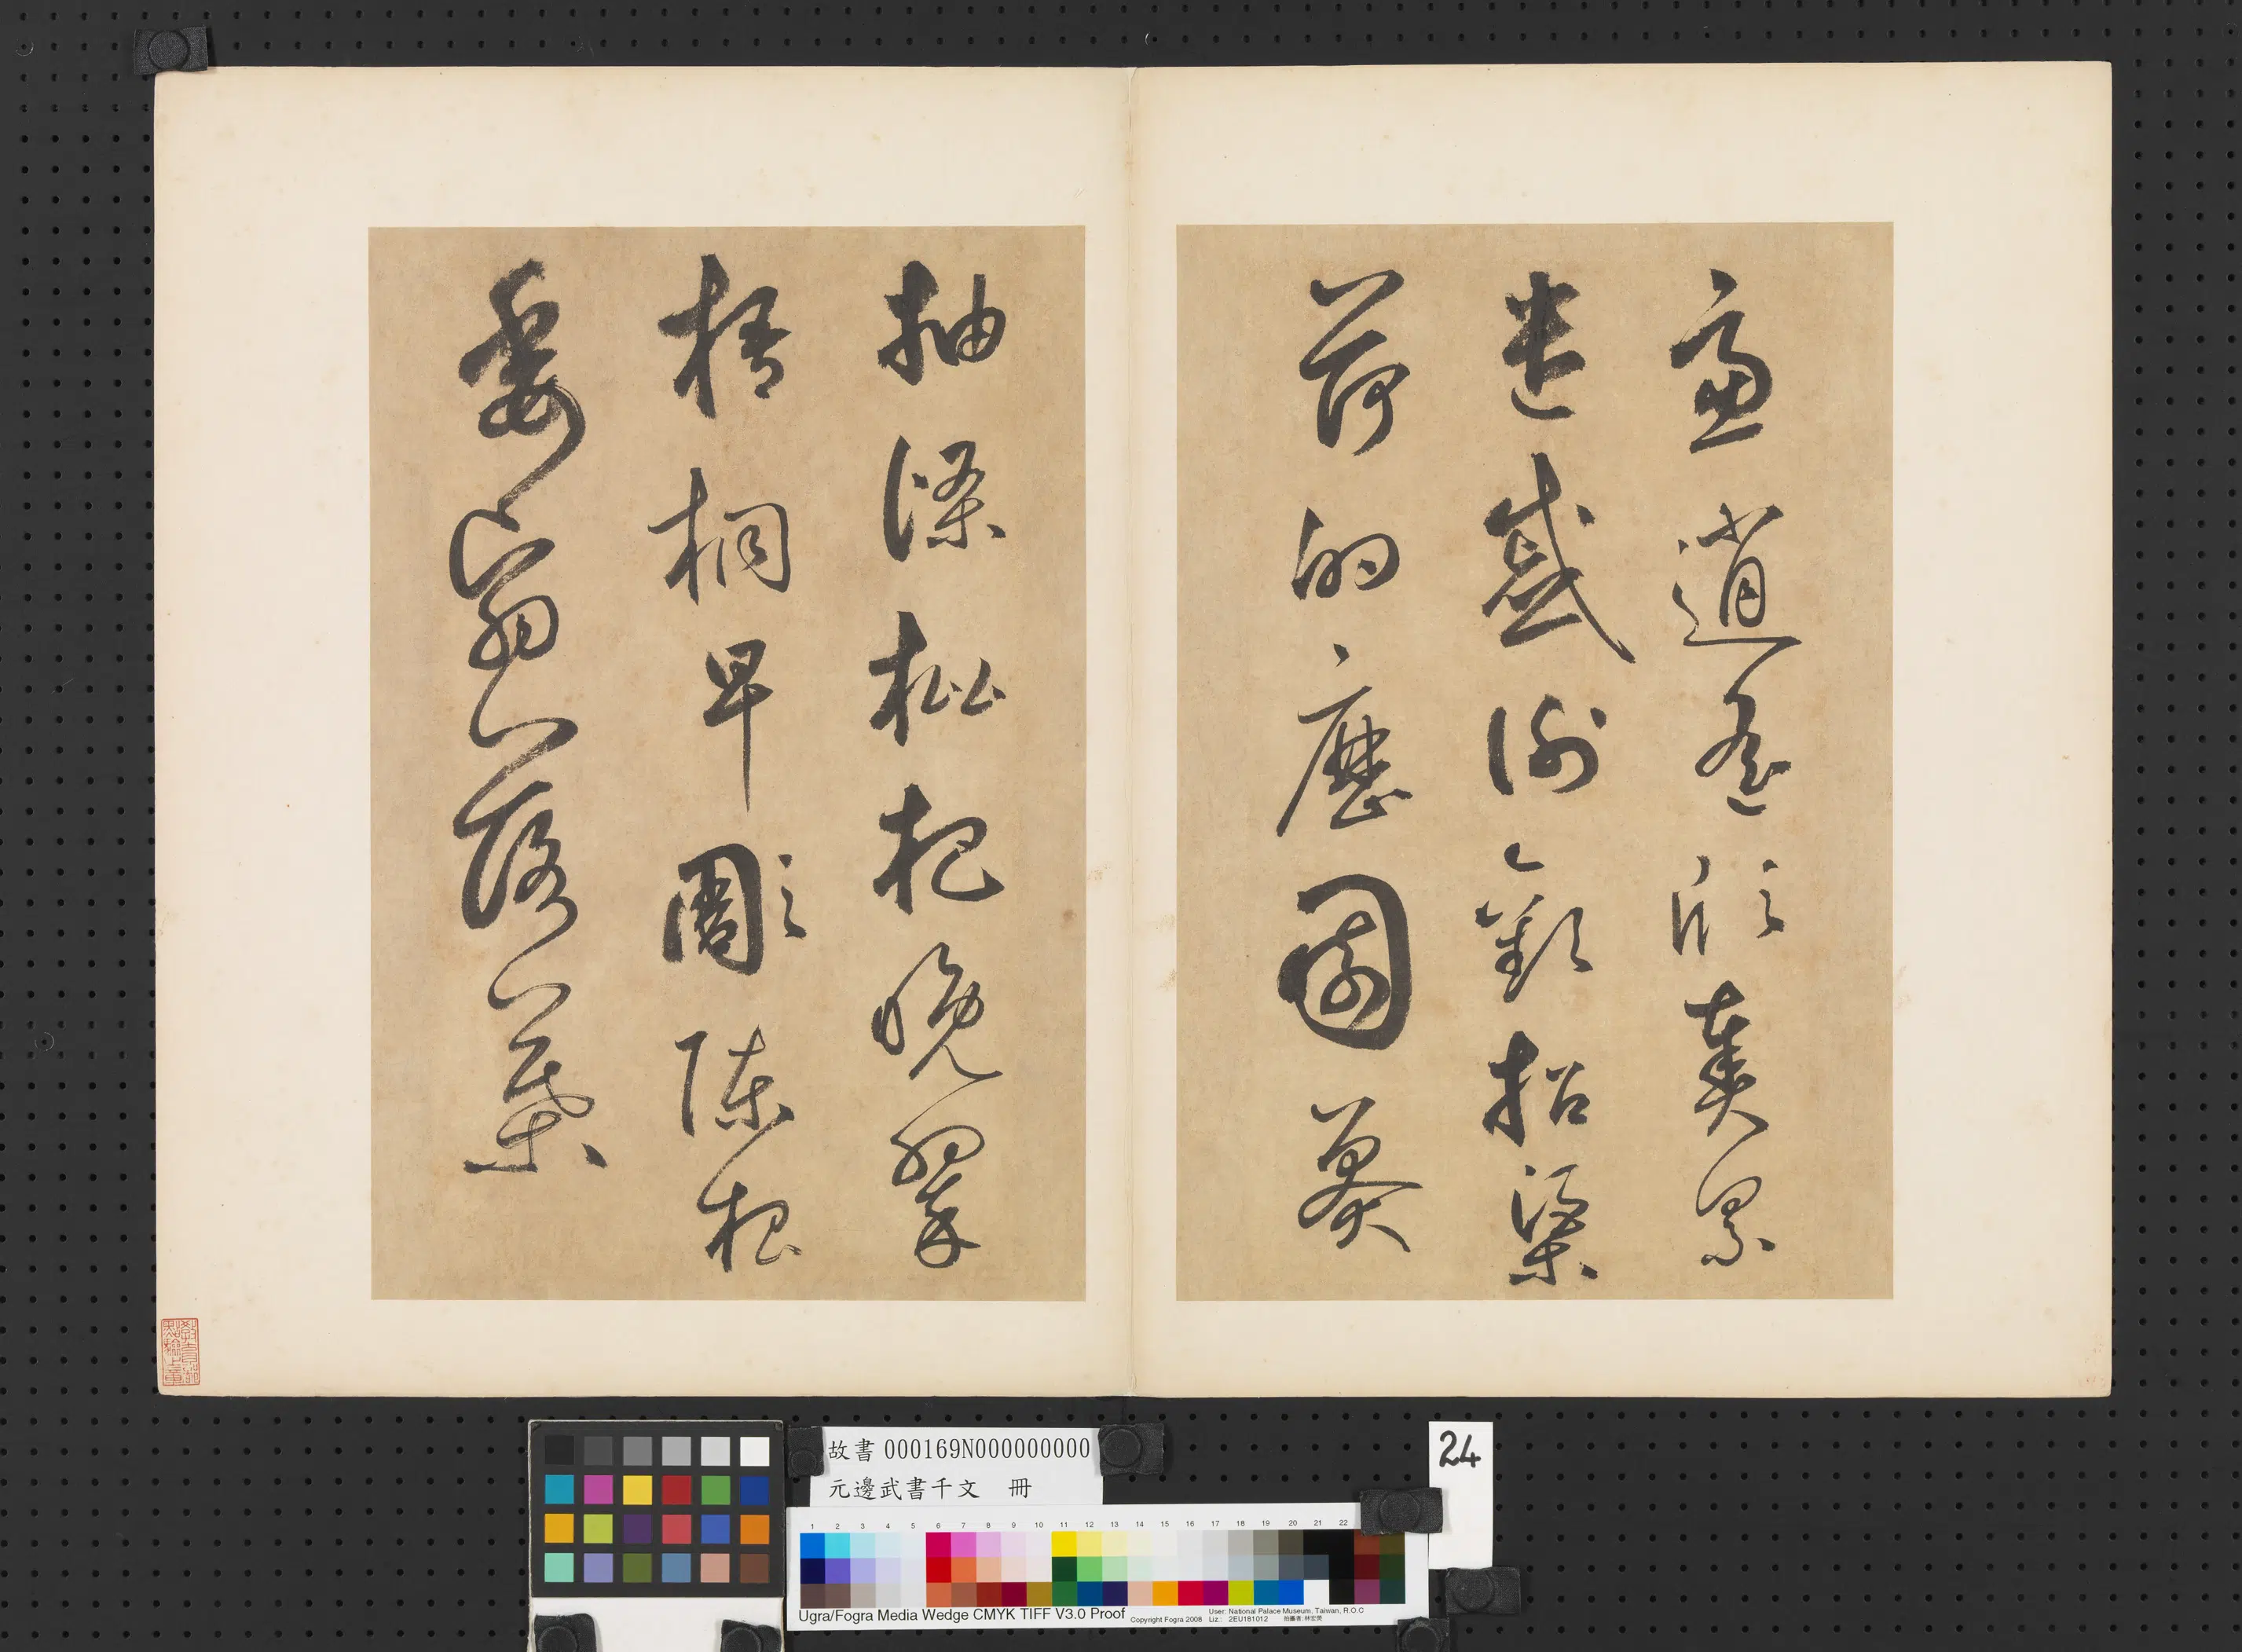 慮逍遙欣奏累
遣慼謝歡招渠
荷的歷園莽
抽條枇杷晚翠
梧桐早彫陳根
委翳落葉
故書 000169N000000000
元邊武書千文 冊
24
1 2 3 4 5 6 7 8 9 10 11 12 13 14 15 16 17 18 19 20 21 22
Ugra/Fogra Media Wedge CMYK TIFF V3.0 Proof
Copyright Fogra 2008
User: National Palace Museum, Taiwan, R.O.C
Liz.: 2EU181012